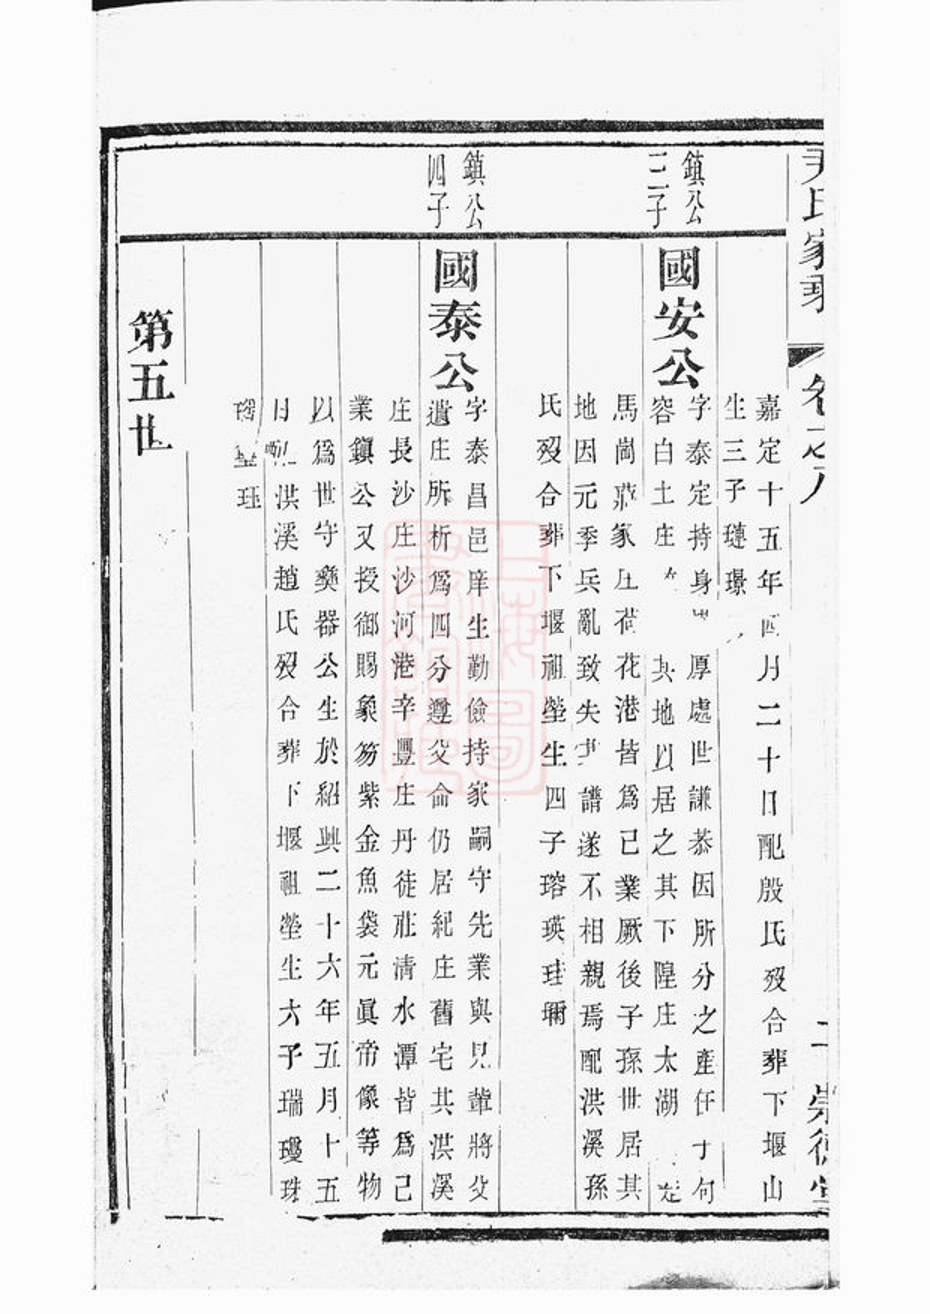 尹氏家乘
卷之八
二
崇德堂
嘉定十五年四月二十日配殷氏歿合葬下堰山
生三子璉璟
鎮公
三子
國安公
字泰定持身厚處世謙恭因所分之產在于何
容白土庄其地以居之其下隍庄太湖
馬崗蔣家庄荷花港皆爲己業厥後子孫世居其
地因元季兵亂致失世譜遂不相親焉配洪溪孫
氏歿合葬下堰祖塋生四子瑢瑛珪瑂
鎮公
四子
國泰公
字泰昌邑庠生勤儉持家嗣守先業與兄輩將父
遺庄所析爲四分遵父命仍居紀庄舊宅其洪溪
庄長沙庄沙河港辛豐庄丹徒莊清水潭皆爲己
業鎮公又授御賜象笏紫金魚袋元眞帝像等物
以爲世守彝器公生於紹興二十六年五月十五
日配洪溪趙氏歿合葬下堰祖塋生六子瑞瓊珠
珏
第五世